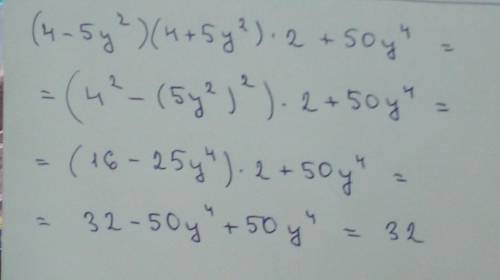 (4 - 5y²)(4 + 5y²) · 2 + 50y⁴ =
= (4² - (5y²)²) · 2 + 50y⁴ =
= (16 - 25y⁴) · 2 + 50y⁴ =
= 32 - 50y⁴ + 50y⁴ = 32